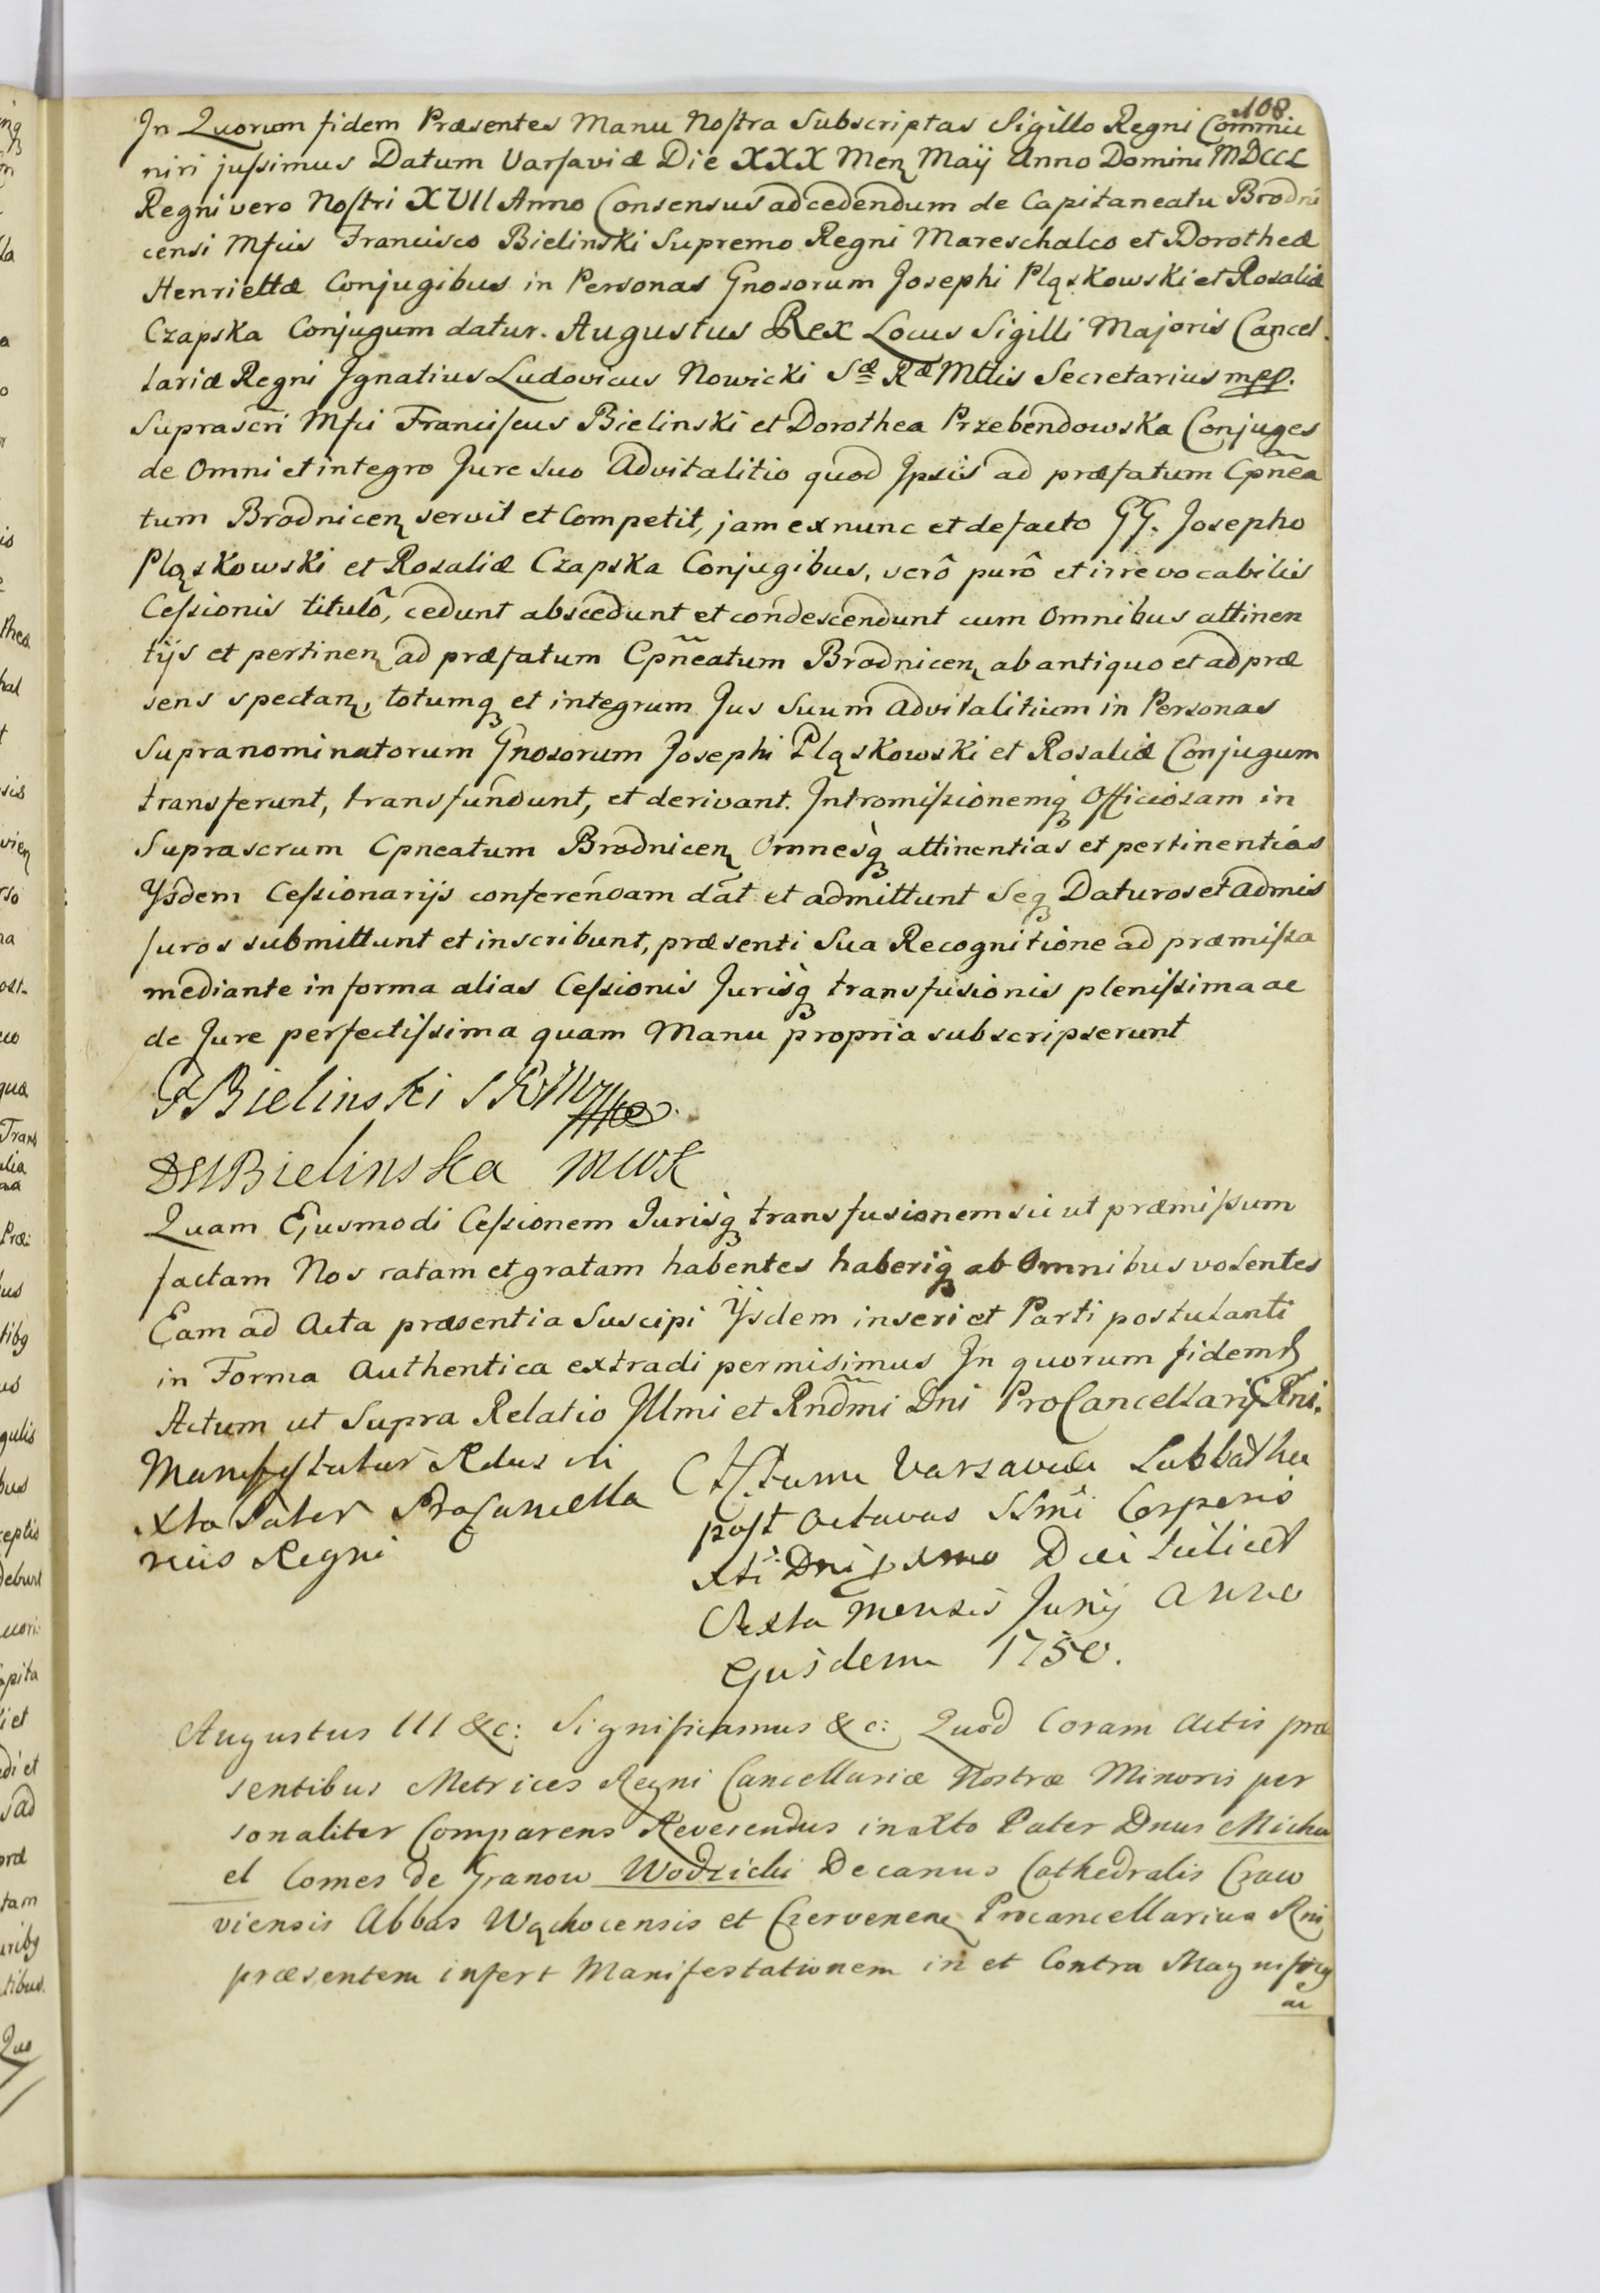 108
In Quorum fidem Præsentes Manu Nostra Subscriptas Sigillo Regni Commu
niri jussimus Datum Varsaviæ Die XXX Men Maÿ Anno Domini MDCCL
Regni vero Nostri XVII Anno Consensus ad cedendum de Capitaneatu Brodni
censi Mfcis Francisco Bielinski Supremo Regni Mareschalco et Dorotheæ
Henriettæ Conjugibus in Personas Gnosorum Josephi Pląskowski et Rosaliæ
Czapska Conjugum datur. Augustus Rex Locus Sigilli Majoris Cancel
lariæ Regni Ignatius Ludovicus Nowicki Sæ Ræ Mttis Secretarius mpp.
Suprascri Mfci Franciscus Bielinski et Dorothea Przebendowska Conjuges
de Omni et integro Jure suo Advitalitio quod Ipsis ad præfatum Cpnea
tum Brodnicen servit et Competit, jam ex nunc et de facto GG. Josepho
Pląskowski et Rosaliæ Czapska Conjugibus, verô purô et irrevocabilis
Cessionis titulô, cedunt abscedunt et condescendunt cum Omnibus attinen
tijs et pertinen ad præfatum Cpneatum Brodnicen ab antiquo et ad præ
sens spectan, totumq et integrum Jus Suum Advitalitium in Personas
Supranominatorum Gnosorum Josephi Pląskowski et Rosaliæ Conjugum
transferunt, transfundunt, et derivant. Intromissionemq Officiosam in
Suprascrum Cpneatum Brodnicen Omnesq attinentias et pertinentias
Ysdem Cessionarijs conferendam dat et admittunt Seq Daturos et Admis
suros submittunt et inscribunt, præsenti Sua Recognitione ad præmissa
mediante in forma alias Cessionis Jurisq transfusionis plenissima ac
de Jure perfectissima quam Manu propria subscripserunt
F Bielinski
DH Bielinska MWK
Quam Ejusmodi Cessionem Jurisq transfusionem sic ut præmissum
factam Nos ratam et gratam habentes haberiq ab Omnibus volentes
Eam ad Acta præsentia Suscipi Ysdem inseri et Parti postulanti
in Forma Authentica extradi permisimus In quorum fidem
Actum ut Supra Relatio Illmi et Rndmi Dni ProCancellarij Rni.
Manifestatur Rdus in
xto Pater ProCancella
rius Regni
Actum Varsaviæ Sabbatho
post Octavas SSmi Corporis
xti Dni Die scilicet
Sexta Mensis Junij Anno
Ejusdem 1750.
Augustus III &c: Significamus &c: Quod Coram Actis præ
sentibus Metrices Regni Cancellariæ Nostræ Minoris per
sonaliter Comparens Reverendus in Xto Pater Dnus Micha
el Comes de Granow Wodzicki Decanus Cathedralis Craco
viensis Abbas Wąchocensis et Czervenen Procancellarius Rni
præsentem infert Manifestationem in et Contra Magnificq
ac